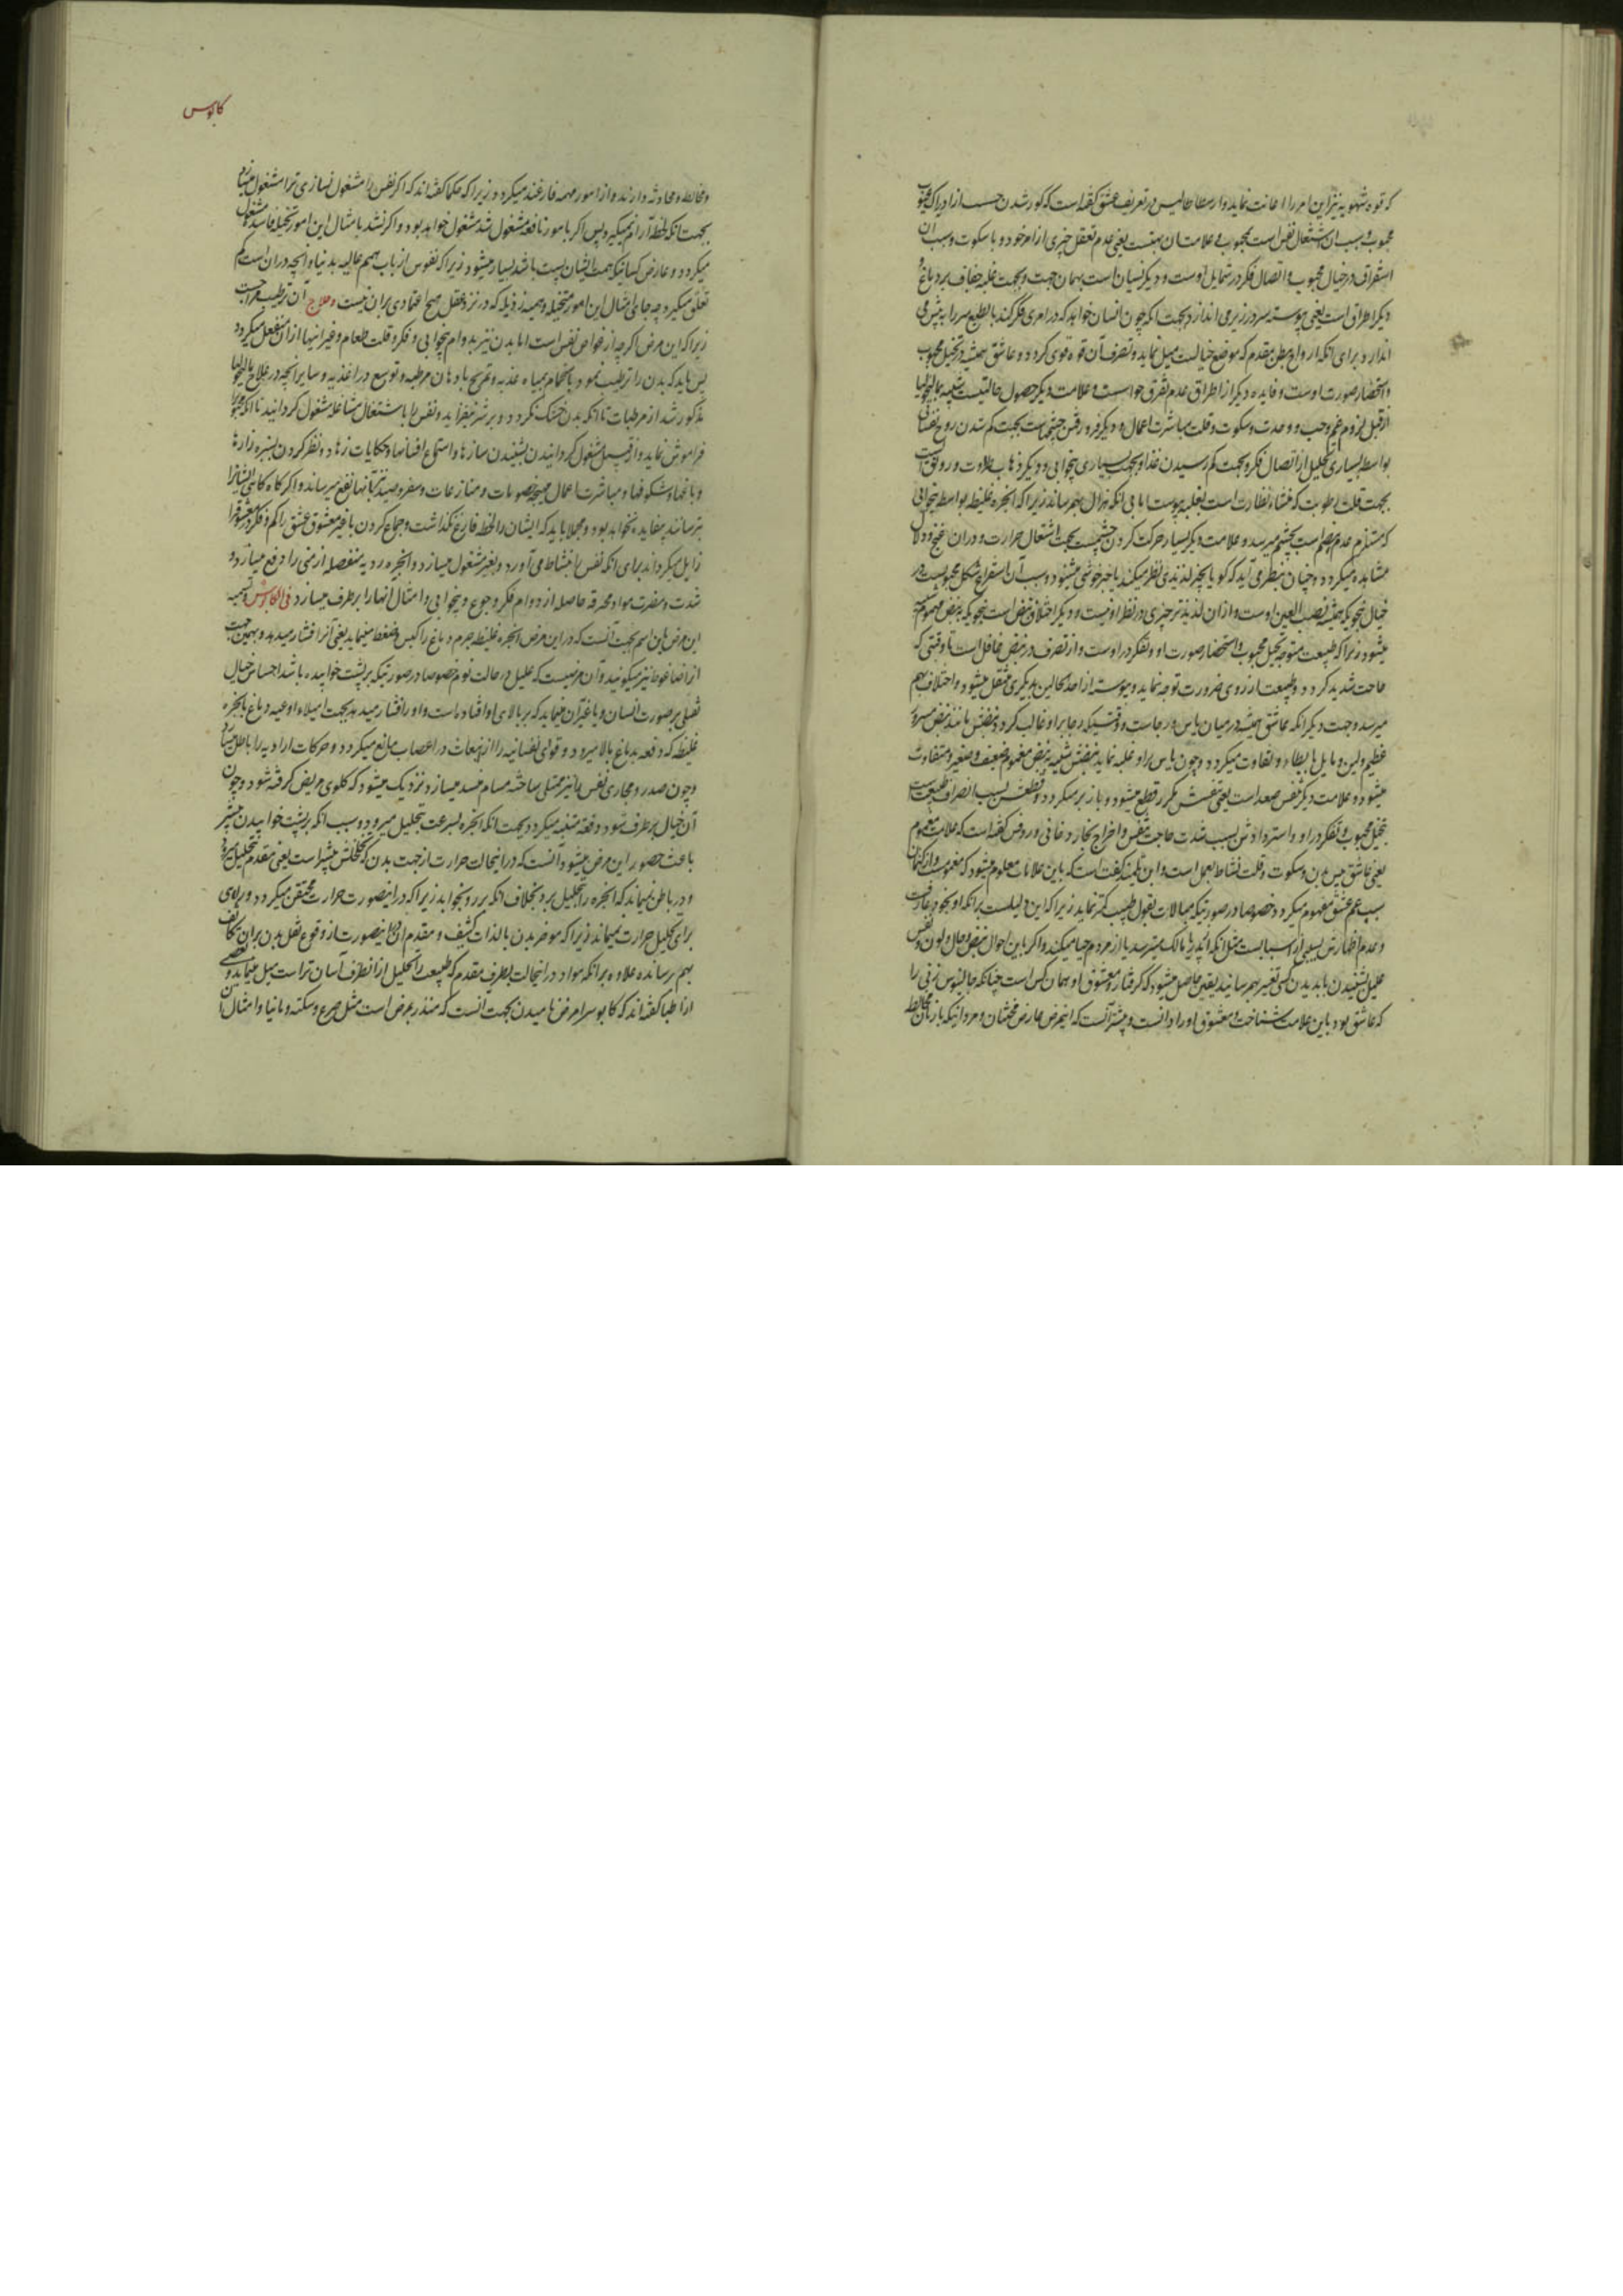 که قوه شهویه نیز این امر را اعانت نماید و ارسطاطالیس در تعریف عشق گفته است که کور شدن حس است از ادراک عیوب
محبوب و سبب آن اشتغال نفس است بمحبوب علامت آن یعنی عدم تعقل چیزی از امر خود و با سکوت و سبب آن
استغراق در خیال محبوب و اتصال فکر در شمایل اوست و دیگر نسیان است بهمان جهت و بجهت غلبه جفاف بر دماغ و
دیگر اطراق است یعنی پیوسته سر در زیر می اندازد بجهت آنکه چون انسان خواهد که در امری فکر کند بالطبع سر را به پیش می
اندازد برای آنکه ارواح ببطن مقدم که موضع خیالست میل نماید و تصرف آن قوه قوی گردد و عاشق همیشه در تخیل محبوب
و استحضار صورت اوست و فایده دیگر از اطراق عدم تفرق حواس است و علامت دیگر حصول حالتیست شبیه بمالیخولیا
از قبل لزوم غم و حب وحدت و سکوت و قلت مباشرت اعمال و دیگر فرو رفتن چشمهاست بجهت کم شدن روح نفسانی
بواسطه بسیاری تحلیل از اتصال فکر و بجهت کم رسیدن غذا و بجهت بسیاری بیخوابی و دیگر ذهاب طلاوت و رونق است
بجهت قلت رطوبت که منشاء نظارت است بغلبه یبوست یا بی آنکه هزال بهم رساند زیرا که ابخره غلیظه بواسطه بیخوابی
که مستلزم عدم هضم است بچشم میرسد و علامت دیگر بسیار حرکت کردن چشمست بجهت اشتعال حرارت و در آن غنج و دلال
مشاهده میگردد و چنان بنظر می آید که گویا بچیز لذیذی نظر میکند یا خبر خوشی میشنود و سبب آن استفراغ شکل محبوبست در
خیال بنحویکه همیشه نصب العین اوست و از آن لذیذتر چیزی در نظر او نیست و دیگر اختلاف نبض است بنحویکه به نبض مهموم شبیه
میشود زیرا که طبیعت متوجه تخیل محبوب و استحضار صورت او و تفکر در اوست و از تصرف در نبض غافل است تا وقتی که
حاجت شدید گردد و طبیعت از روی ضرورت توجه نماید و پیوسته از احد الحالین بدیگری منتقل میشود و اختلاف بهم
میرسد و جهت دیگر آنکه عاشق همیشه در میان یاس و رجاست و وقتیکه رجا بر او غالب گردد نبضش مانند نبض مسرور
عظیم و لین و مایل بابطاء و تفاوت میگردد و چون یاس بر او غلبه نماید نبضش شبیه به نبض مغموم ضعیف و صغیر و متفاوت
میشود و علامت دیگر نفس صعداء است یعنی نفسش مکرر قطع میشود و باز برمیگردد و قطعش بسبب انصراف طبیعت است
بتخیل محبوب و تفکر در او و استردادش بسبب شدت حاجت بتنفس و اخراج بخار دخانی و روفس گفته است که علامت مغموم
یعنی عاشق یبس بدن و سکوت و قلت نشاط بعمل است و ابن تلمیذ گفته است که باین علامات معلوم میشود که مغموم است و از کتمان
سبب غم عشق مفهوم میگردد خصوصا در صورتیکه مبالات بقول طبیب کمتر نماید زیرا که این دلیلست بر آنکه او بخود عارفست
و عدم اظهارش بسببی از اسبابست مثل آنکه از پدر یا مالک میترسد یا از مردم حیا میکند و اگر باین احوال نبض و حال و لون و نفس
علیل بشنیدن یا بدیدن کسی تغییر بهم رسانید یقین حاصل میشود که گرفتار و معشوق او همان کس است چنانکه جالینوس زنی را
که عاشق بود باین علامت شناخت و معشوق او را دانست و بیشتر آنست که این مرض عارض مخنثان و مردانیکه با زنان مخالطه
کابوس
و مخالطه و محادثه دارند و از امور مهمه فارغند میگردد زیرا که حکما گفته اند که اگر نفس را مشغول نسازی ترا مشغول میسازد
بجهت آنکه لحظه آرام نمیگیرد پس اگر بامور نافعه مشغول شد مشغول خواهد بود و اگر نشد بامثال این امور متخیله فاسده مشغول
میگردد و عارض کسانیکه همت ایشان پست باشد بسیار میشود زیرا که نفوس ارباب همم عالیه بدنیا و آنچه در آن است کم
تعلق میگیرد چه جای امثال این امور متخیله وهمیه رذیله که در نزد عقل صحیح اعتمادی بر آن نیست و علاج آن ترطیب مزاجست
زیرا که این مرض اگرچه از خواص نفس است اما بدن نیز بدوام بیخوابی و فکر و قلت طعام و غیر اینها از آن منفعل میگردد
پس باید که بدن را ترطیب نمود باستحمام بمیاه عذبه و تمریخ بادهان مرطبه و توسیع در اغذیه و سایر آنچه در علاج مالیخولیا
مذکور شد از مرطبات تا آنکه بدن خشک نگردد و بر شر نیفزاید و نفس را باشتغال مشاغل مشغول گردانید تا آنکه محبوب را
فراموش نماید و از قبیل مشغول گردانیدن بشنیدن سازها و استماع افسانها و حکایات زهاد و نظر کردن بسبزه زارها
و باغها و شکوفها و مباشرت اعمال صیحه خصومات و منازعات و سفر و صید نیز بآنها نفع میرساند و اگر گاه گاهی ایشان را
بترسانند بیفایده نخواهد بود و مجملا باید که ایشان را لحظه فارغ نگذاشت و جماع کردن با غیر معشوق عشق را کم و فکر در معشوق را
زایل میگرداند برای آنکه نفس را بنشاط می آورد و بغیر مشغول میسازد و ابخره ردیه منفصله از منی را دفع میسازد و
شدت و مضرت مواد محترقه حاصله از دوام فکر و جوع و بیخوابی و امثال آنها را برطرف میسازد فی الکابوس تسمیه
این مرض باین اسم بجهت آنست که در این مرض ابخره غلیظه جرم دماغ را کبس و ضغط مینماید یعنی آنرا فشار میدهد و بهمین جهت
آنرا ضاغوط نیز میگویند و آن مرضیست که علیل در حالت نوم خصوصا در صورتیکه بر پشت خوابیده باشد احساس خیال
ثقیلی بر صورت انسان و یا غیر آن مینماید که بر بالای او افتاده است و او را فشار میدهد بجهت امتلاء اوعیه دماغ بابخره
غلیظه که دفعه بدماغ بالا میرود و قوای نفسانیه را از انبعاث در اعصاب مانع میگردد و حرکات ارادیه را باطل میسازد
و چون صدر و مجاری نفس را نیز ممتلی ساخته مسام منسد میسازد نزدیک میشود که گلوی مریض گرفته شود و چون
آن خیال برطرف شود دفعة متنبه میگردد بجهت آنکه ابخره بسرعت بتحلیل میرود و سبب آنکه بر پشت خوابیدن بیشتر
باعث حصول این مرض میشود آنست که در اینحالت حرارت از جهت بدن که تخلخلش بیشتر است یعنی مقدم بتحلیل میرود
و در باطن نمیماند که ابخره را بتحلیل برد بخلاف آنکه بر رو بخوابد زیرا که در اینصورت حرارت محتقن میگردد و راهی
برای تحلیل حرارت نمیماند زیرا که موخر بدن بالذات کثیف و مقدم آن در اینصورت از وقوع ثقل بدن بر آن تکاثف
بهم رسانده علاوه بر آنکه مواد در اینحالت بطرف مقدم که طبیعت را تحلیل از آنطرف آسان تر است میل مینماید و بعضی
از اطبا گفته اند که کابوس را مرض نامیدن بجهت آنست که منذر بمرض است مثل صرع و سکته و مانیا و امثال آن